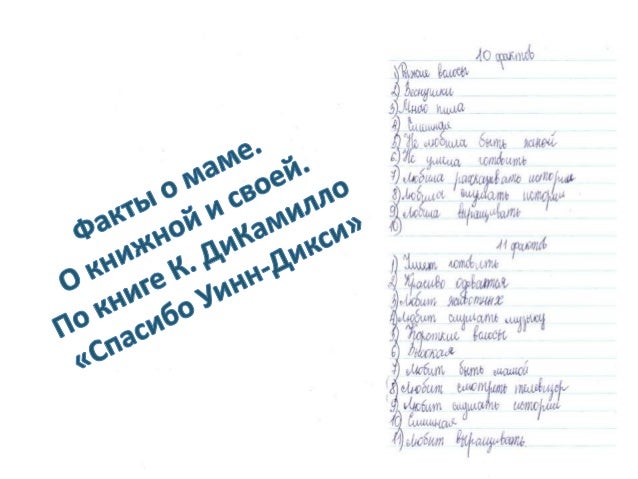 Факты о маме.
О книжной и своей.
По книге К. ДиКамилло
«Спасибо Уинн-Дикси»
10 фактов
1) Рыжие волосы
2) Веснушки
3) Много пила
4) Смешная
5) Не любила быть
6) Не умела готовить
7) Любила рассказывать истории
8) Любила слушать истории
9) Любила выращивать
10)
11 фактов
1) Умеет готовить
2) Красиво одевается
3) Любит животных
4) Любит слушать музыку
5) Короткие волосы
6) Высокая
7) Любит быть мамой
8) Любит смотреть телевизор
9) Любит слушать истории
10) Смешная
11) Любит выращивать.